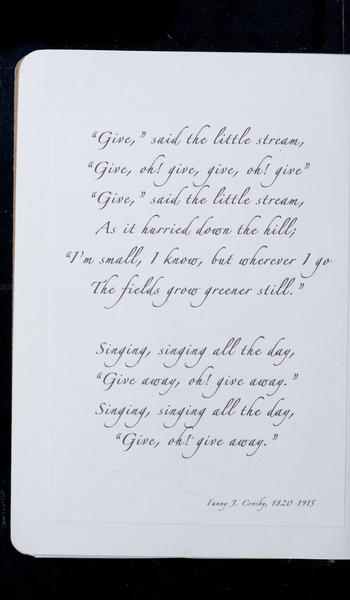 “Give,” said the little stream,
“Give, oh! give, give, oh! give”
“Give,” said the little stream,
As it hurried down the hill;
“I’m small, I know, but wherever I go
The fields grow greener still.”
Singing, singing all the day,
“Give away, oh! give away.”
Singing, singing all the day,
“Give, oh! give away.”
Fanny J. Crosby, 1820-1915